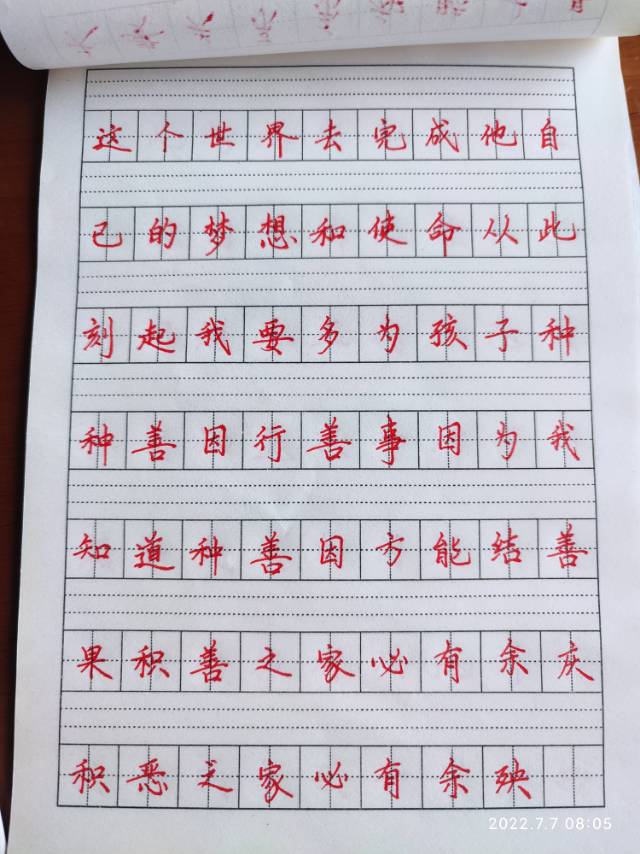 这个世界去完成他自
己的梦想和使命从此
刻起我要多为孩子种
种善因行善事因为我
知道种善因方能结善
果积善之家必有余庆
积恶之家必有余殃
2022.7.7 08:05